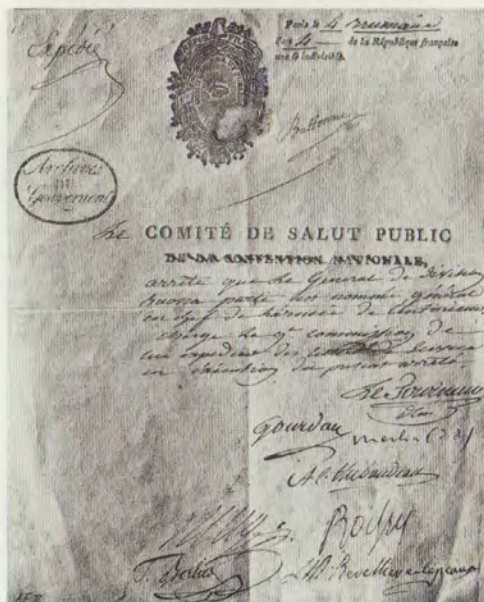 Expédié
Paris le 4 Brumaire
l'an 4 de la République française
une & indivisible.
Archives
DU
Gouvernement
Le COMITÉ DE SALUT PUBLIC
DE LA CONVENTION NATIONALE,
arrête que le Général de Division
Buonaparte est nommé général
en chef de l'armée de l'intérieur,
charge la 9e commission de
lui expédier des Service
en exécution du présent arrêté.
Gourdan
Merlin (d. D.)
A. C. Thibaudeau
Boissy
T. Berlier
LM Revelliere-lepeaux